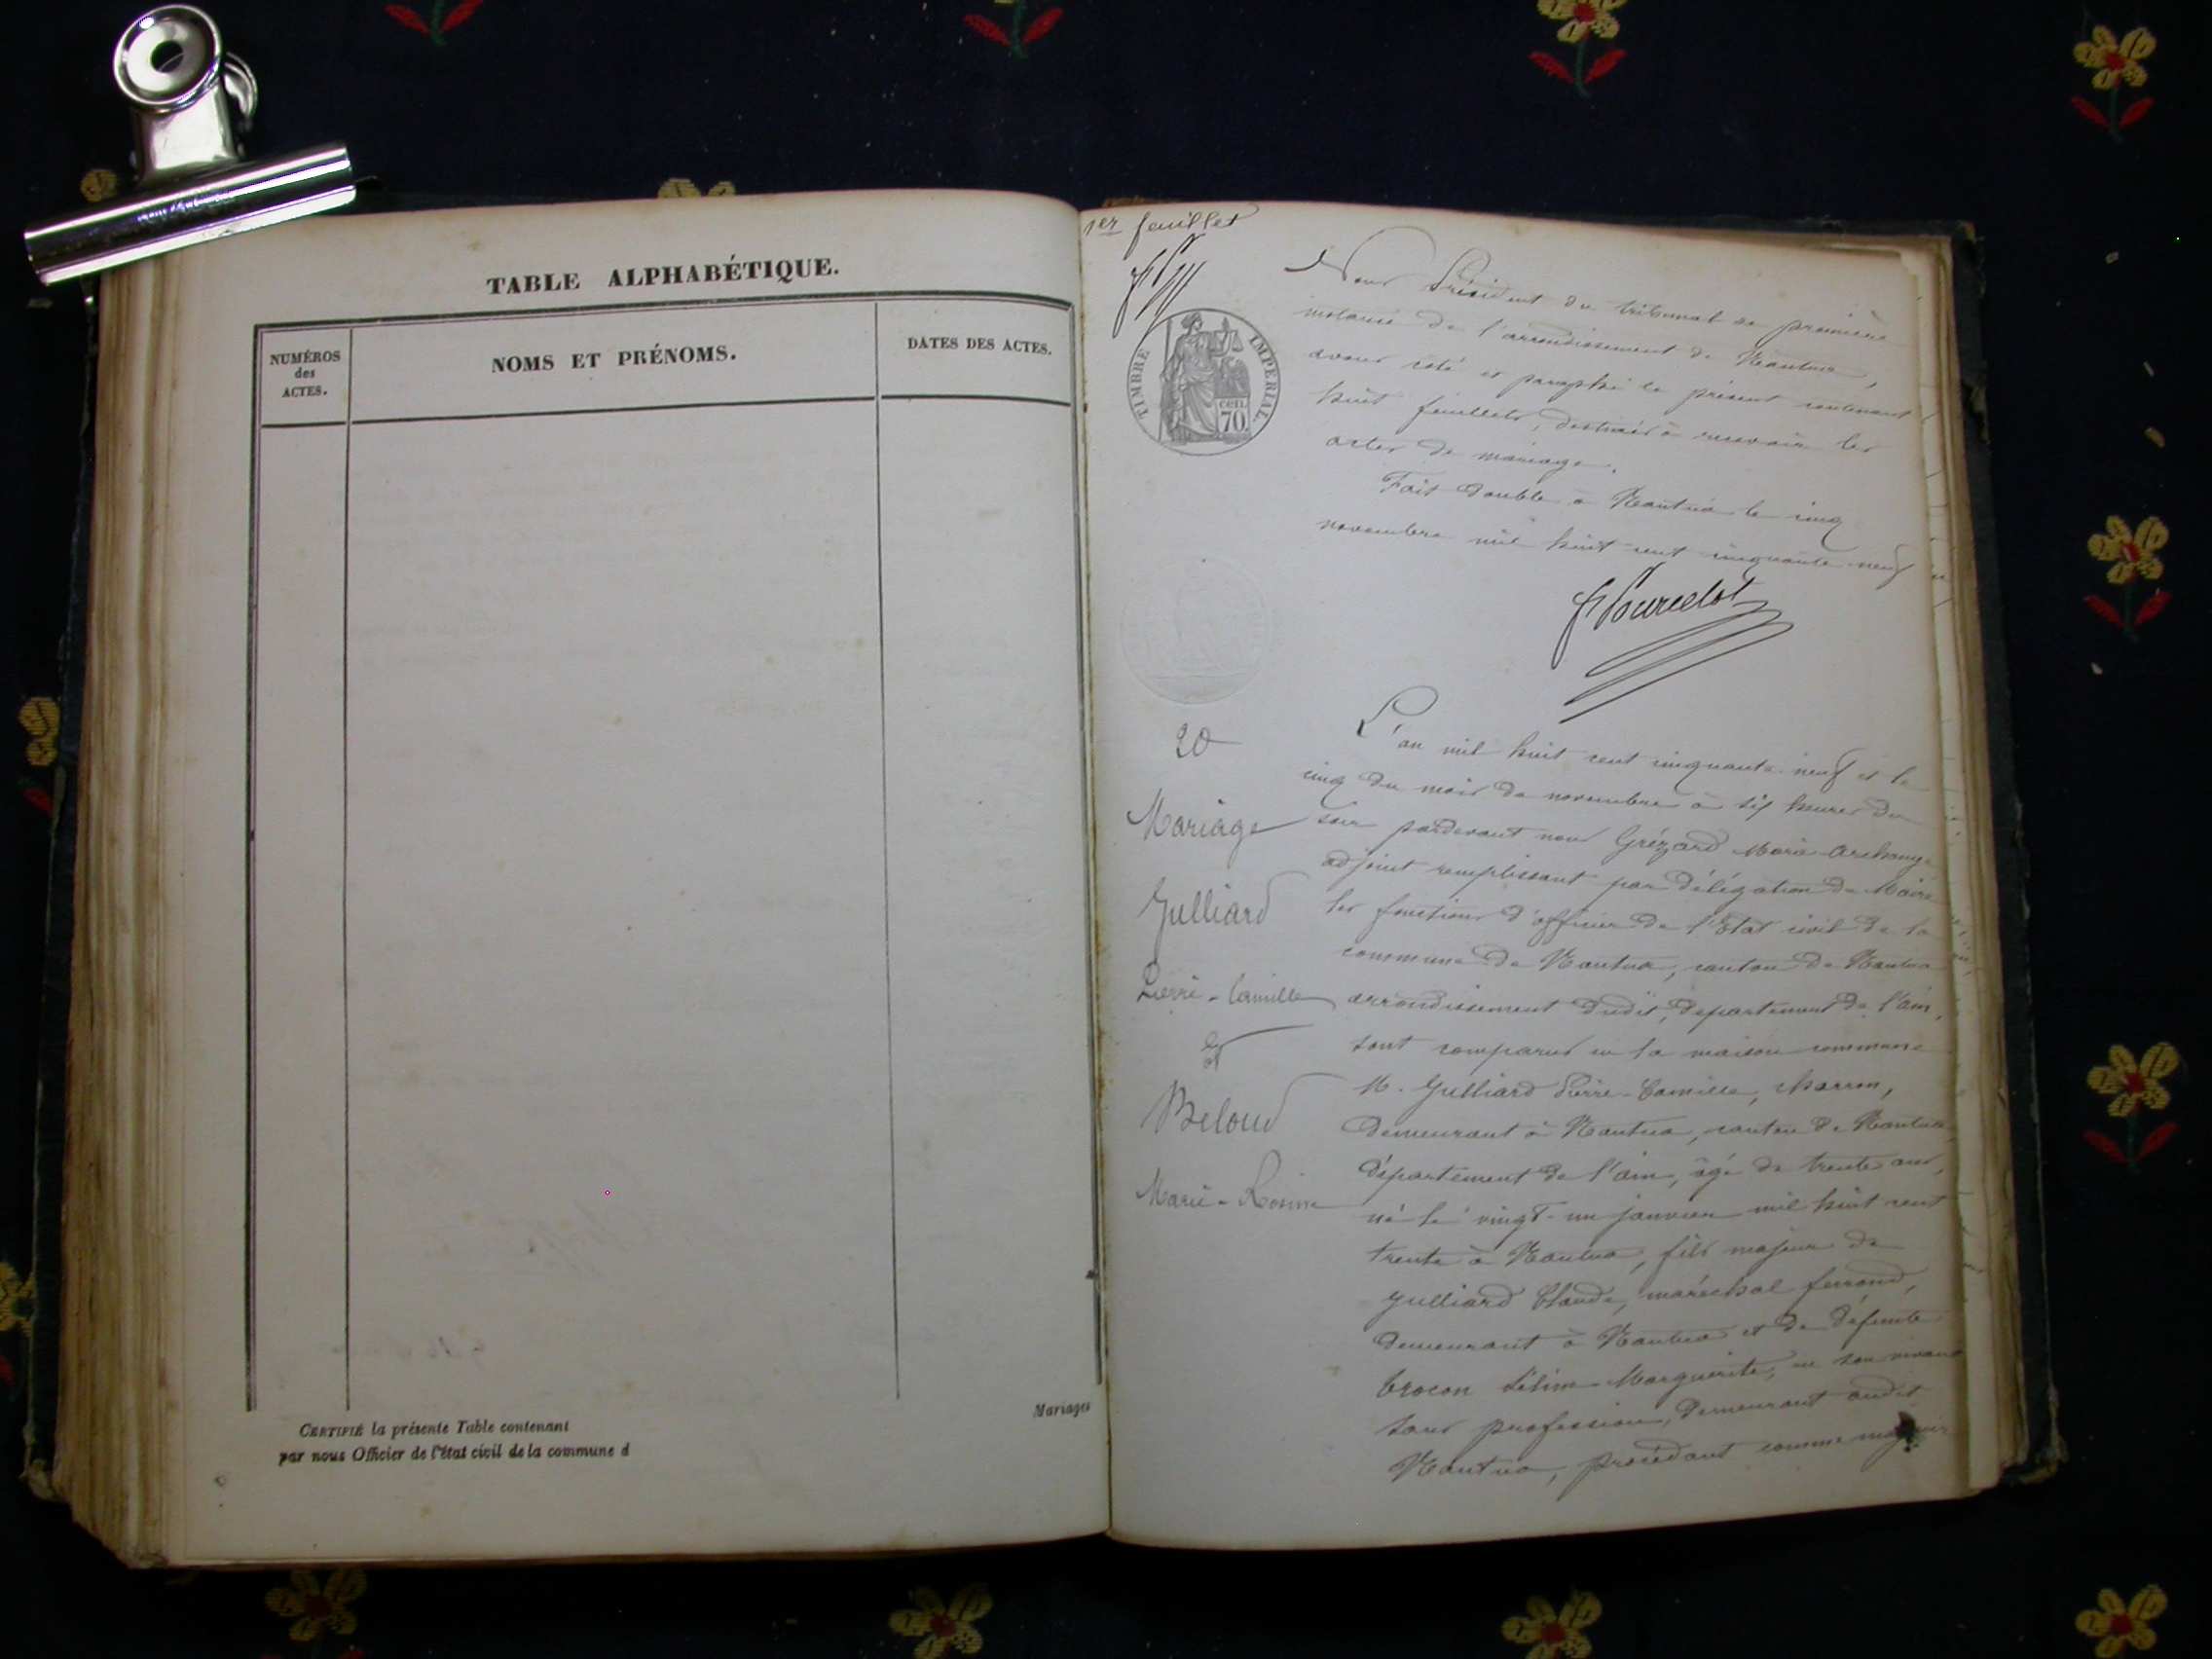 TABLE ALPHABÉTIQUE.
NUMÉROS
des
ACTES.
NOMS ET PRÉNOMS.
DATES DES ACTES.
CERTIFIÉ la présente Table contenant
par nous Officier de l'état civil de la commune d
Mariages
1er feuillet
TIMBRE IMPERIAL
cen.
70.
Nous Président du tribunal de première
instance de l'arrondissement de Nantua,
avons coté et paraphé le présent contenant
huit feuillets, destinés à recevoir les
actes de mariage.
Fait double à Nantua le cinq
novembre mil huit cent cinquante neuf
20
Mariage
Julliard
Pierre-Camille
et
Beloud
Marie-Rosine
L'an mil huit cent cinquante neuf et le
cinq du mois de novembre à six heures du
soir pardevant nous Grézard Marie Archange
adjoint remplissant par délégation du Maire
les fonctions d'officier de l'Etat civil de la
commune de Nantua, canton de Nantua
arrondissement dudit, département de l'ain,
sont comparus en la maison commune
M. Julliard Pierre-Camille, charron,
demeurant à Nantua, canton de Nantua,
département de l'ain, âgé de trente ans,
né le vingt-un janvier mil huit cent
trente à Nantua, fils majeur de
Julliard Claude, maréchal ferrand,
demeurant à Nantua et de défunte
Marguerite, en son vivant
sans profession, demeurant audit
Nantua, procédant comme majeur